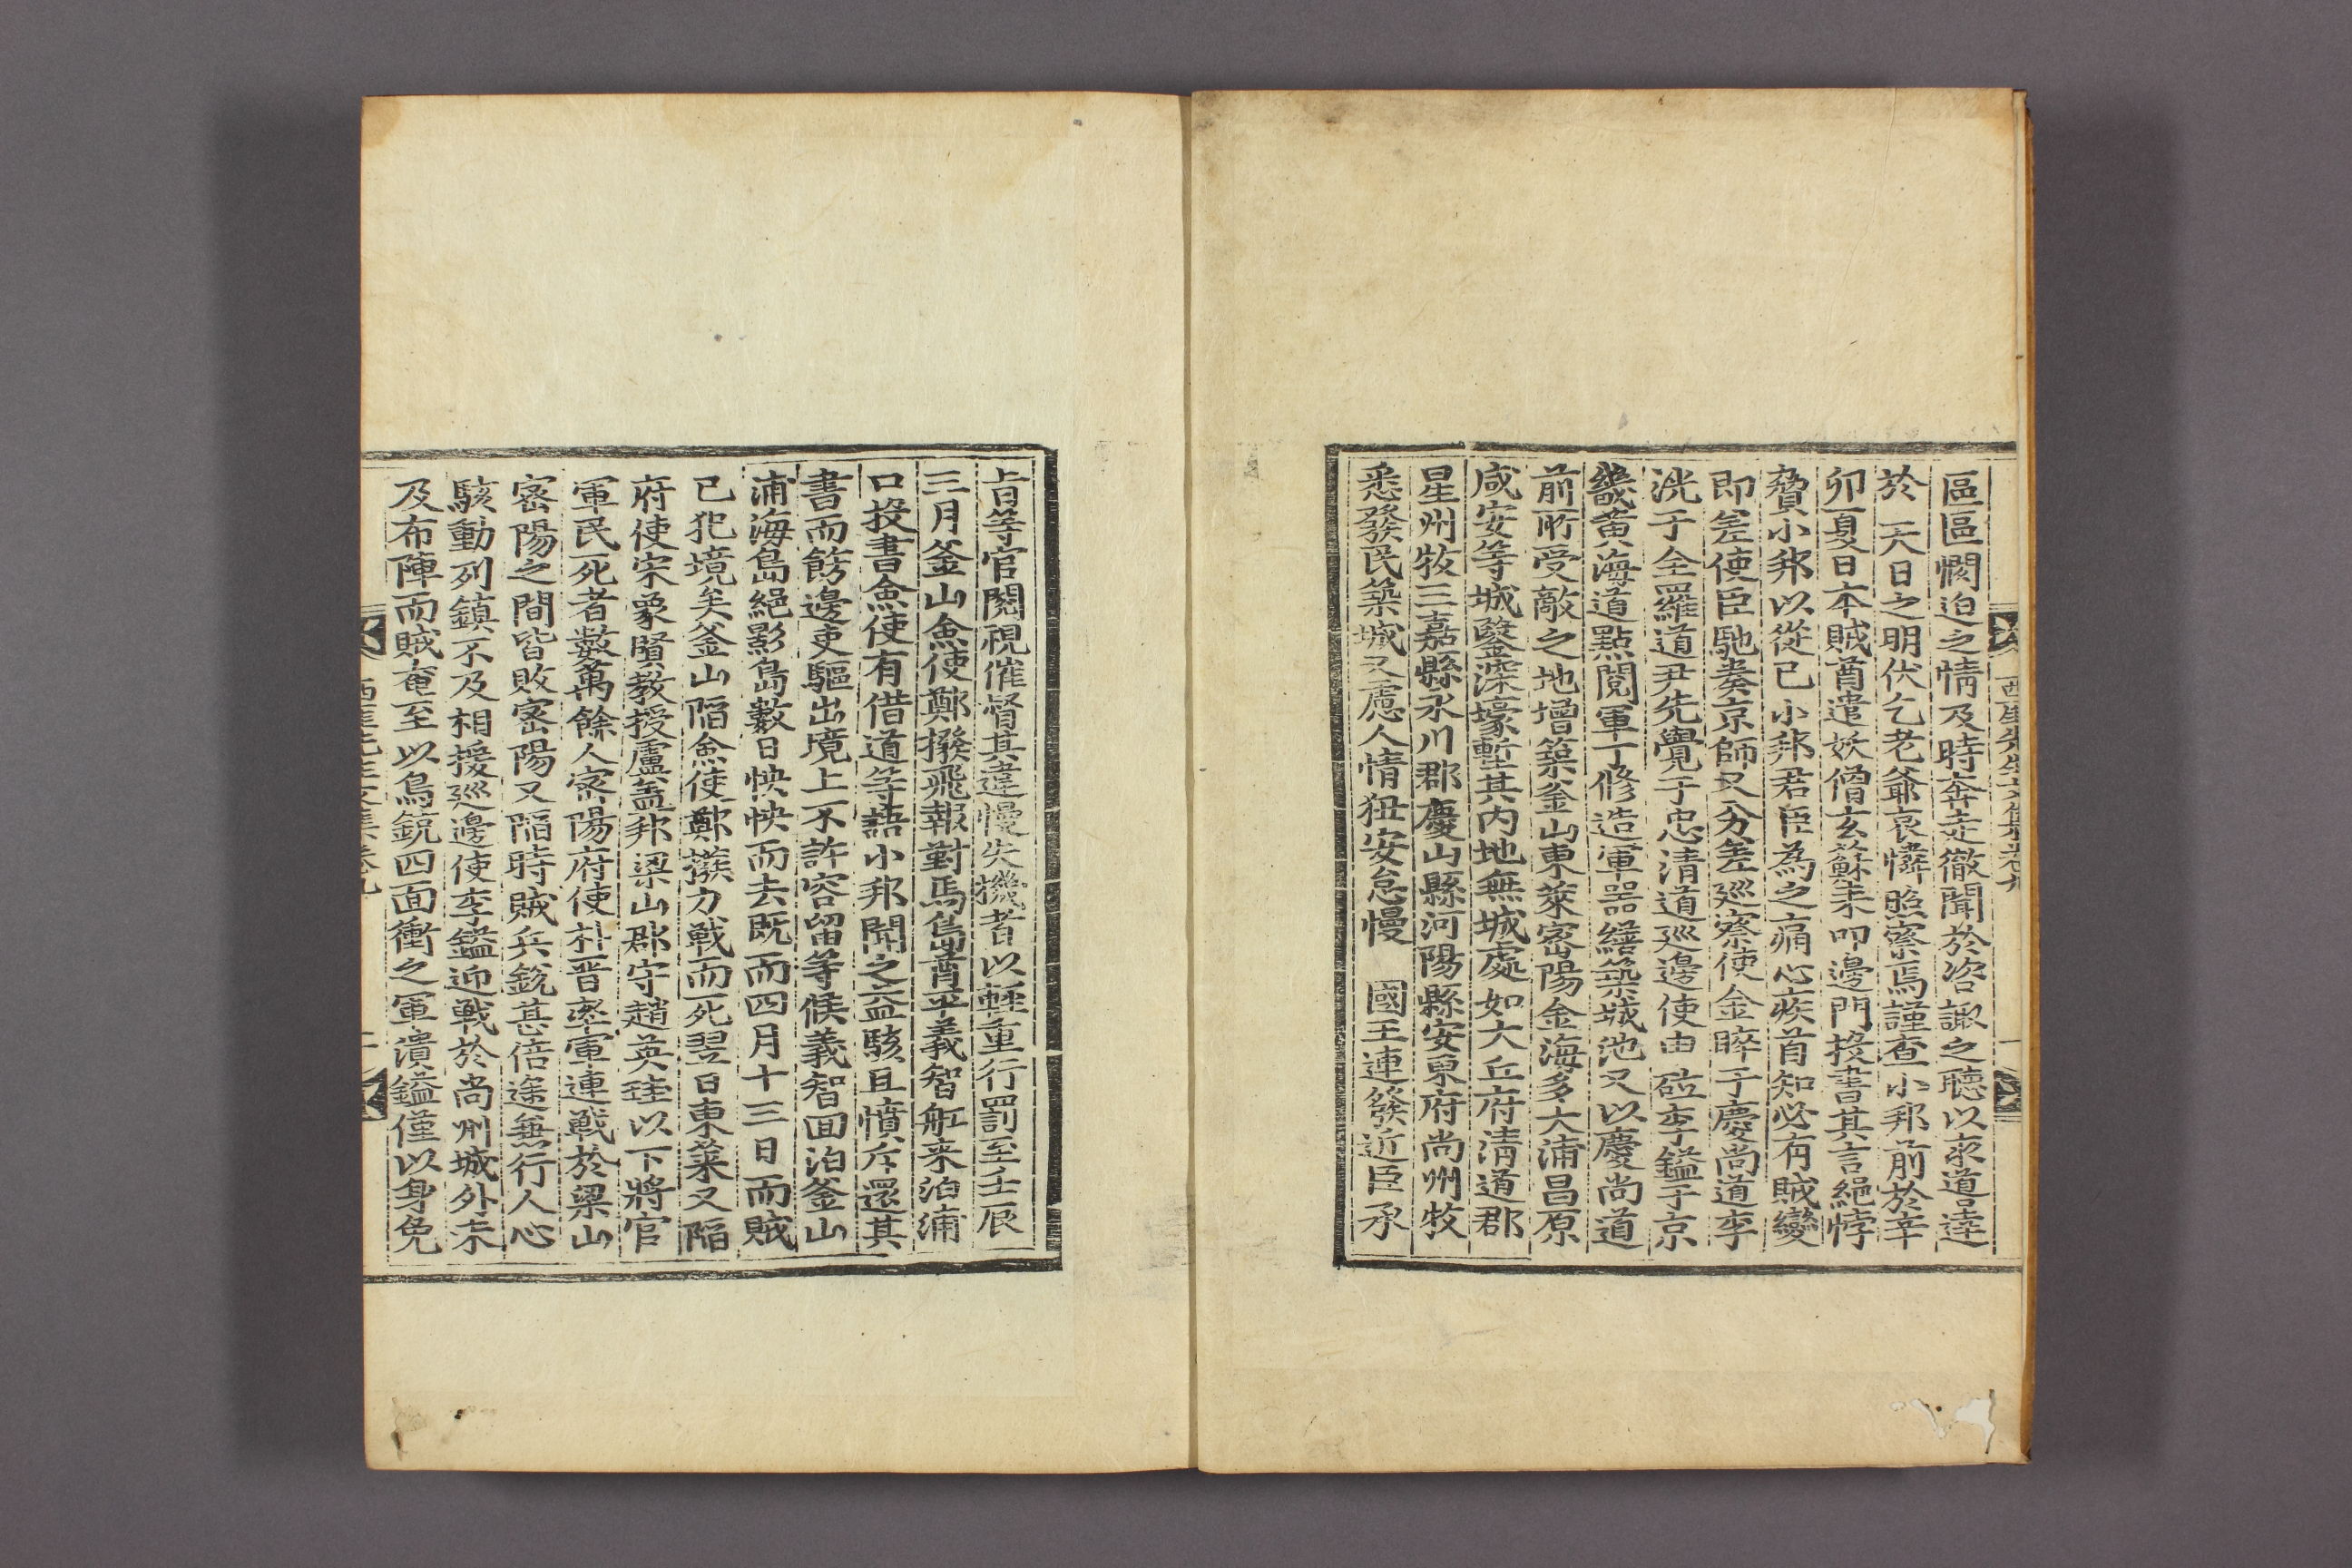 西厓先生文集卷九
區區悶迫之情及時奔走徹聞於咨諏之聽以哀道逵
於 天日之明伏乞老爺哀憐照察焉謹查小邦前於辛
卯夏日本賊酋遣妖僧玄蘇來叩邊門投書其言絕悖
脅小邦以從己小邦君臣爲之痛心疾首知必有賊變
即差使臣馳奏京師又分差巡察使金睟于慶尚道李
洸于全羅道尹先覺于忠淸道巡邊使申砬李鎰于京
畿黃海道點閱軍丁修造軍器繕築城池又以慶尚道
前所受敵之地增築釜山東萊密陽金海多大浦昌原
咸安等城鑿深壕塹其內地無城處如大丘府淸道郡
星州牧三嘉縣永川郡慶山縣河陽縣安東府尚州牧
悉發民築城又慮人情狃安怠慢 國王連發近臣承
旨等官閱視催督其違慢失機者以輕重行罰至壬辰
三月釜山僉使鄭撥飛報對馬島酋平義智舡來泊浦
口投書僉使有借道等語小邦聞之益駭且憤斥還其
書而飭邊吏驅出境上不許容留等候義智回泊釜山
浦海島絕影島數日怏怏而去旣而四月十三日而賊
已犯境矣釜山陷僉使鄭撥力戰而死翌日東萊又陷
府使宋象賢敎授盧盖邦梁山郡守趙英珪以下將官
軍民死者數萬餘人密陽府使朴晋率軍連戰於梁山
密陽之間皆敗密陽又陷時賊兵銳甚倍途兼行人心
駭動列鎭不及相援巡邊使李鎰迎戰於尚州城外未
及布陣而賊奄至以鳥銃四面衝之軍潰鎰僅以身免
西厓先生文集卷九